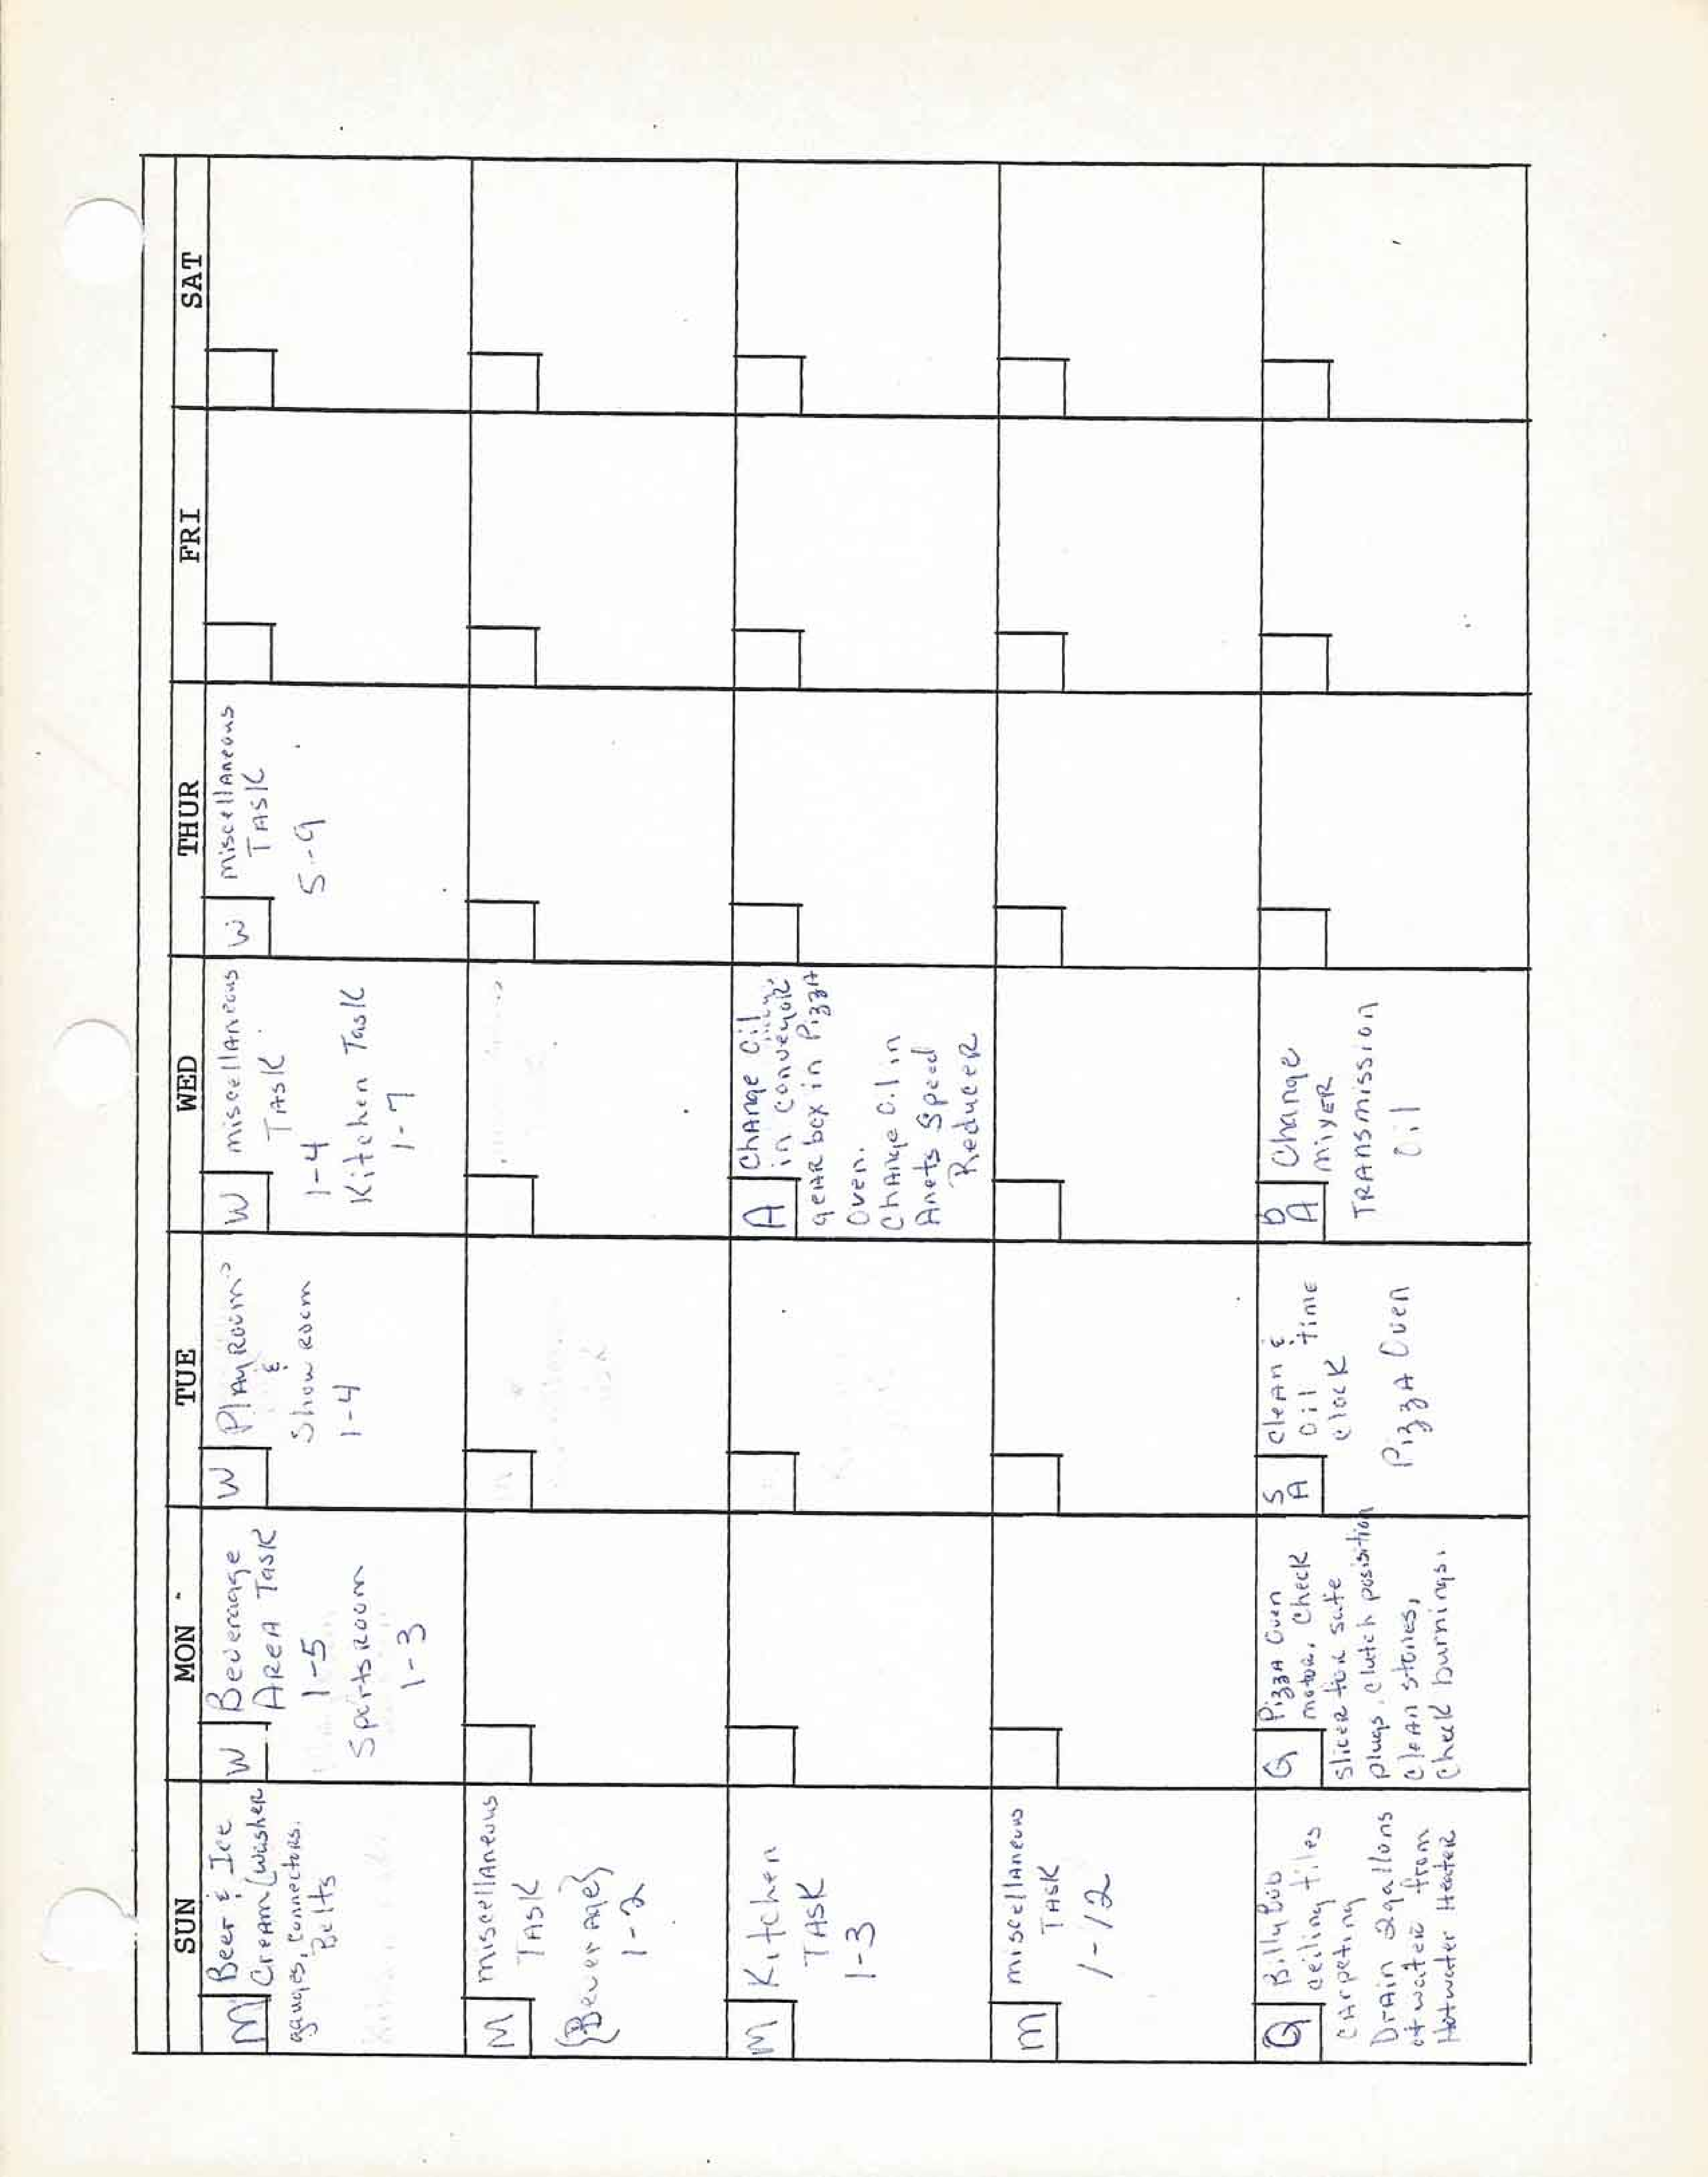 SUN MON TUE WED THUR FRI SAT
M Beer & Ice
Cream (washer
gauges, connectors.
Belts
W Beverage
AREA TASK
1-5
Sports Room
1-3
W Play Room
&
Show Room
1-4
W miscellaneous
TASK
1-4
Kitchen Task
1-7
W miscellaneous
TASK
5-9
M miscellaneous
TASK
{Beverage}
1-2
M Kitchen
TASK
1-3
A Change Oil
in conveyor
gear box in Pizza
Oven.
Change oil in
Anets Speed
Reducer
M miscellaneous
TASK
1-12
Q Billy Bob
ceiling tiles
carpeting
Drain 2 gallons
of water from
Hotwater Heater
Q Pizza Oven
motor, Check
slicer for safe
plugs, clutch posisition
clean stones,
Check burnings.
S
A Clean &
Oil time
clock
Pizza Oven
b
A Change
mixer
Transmission
Oil